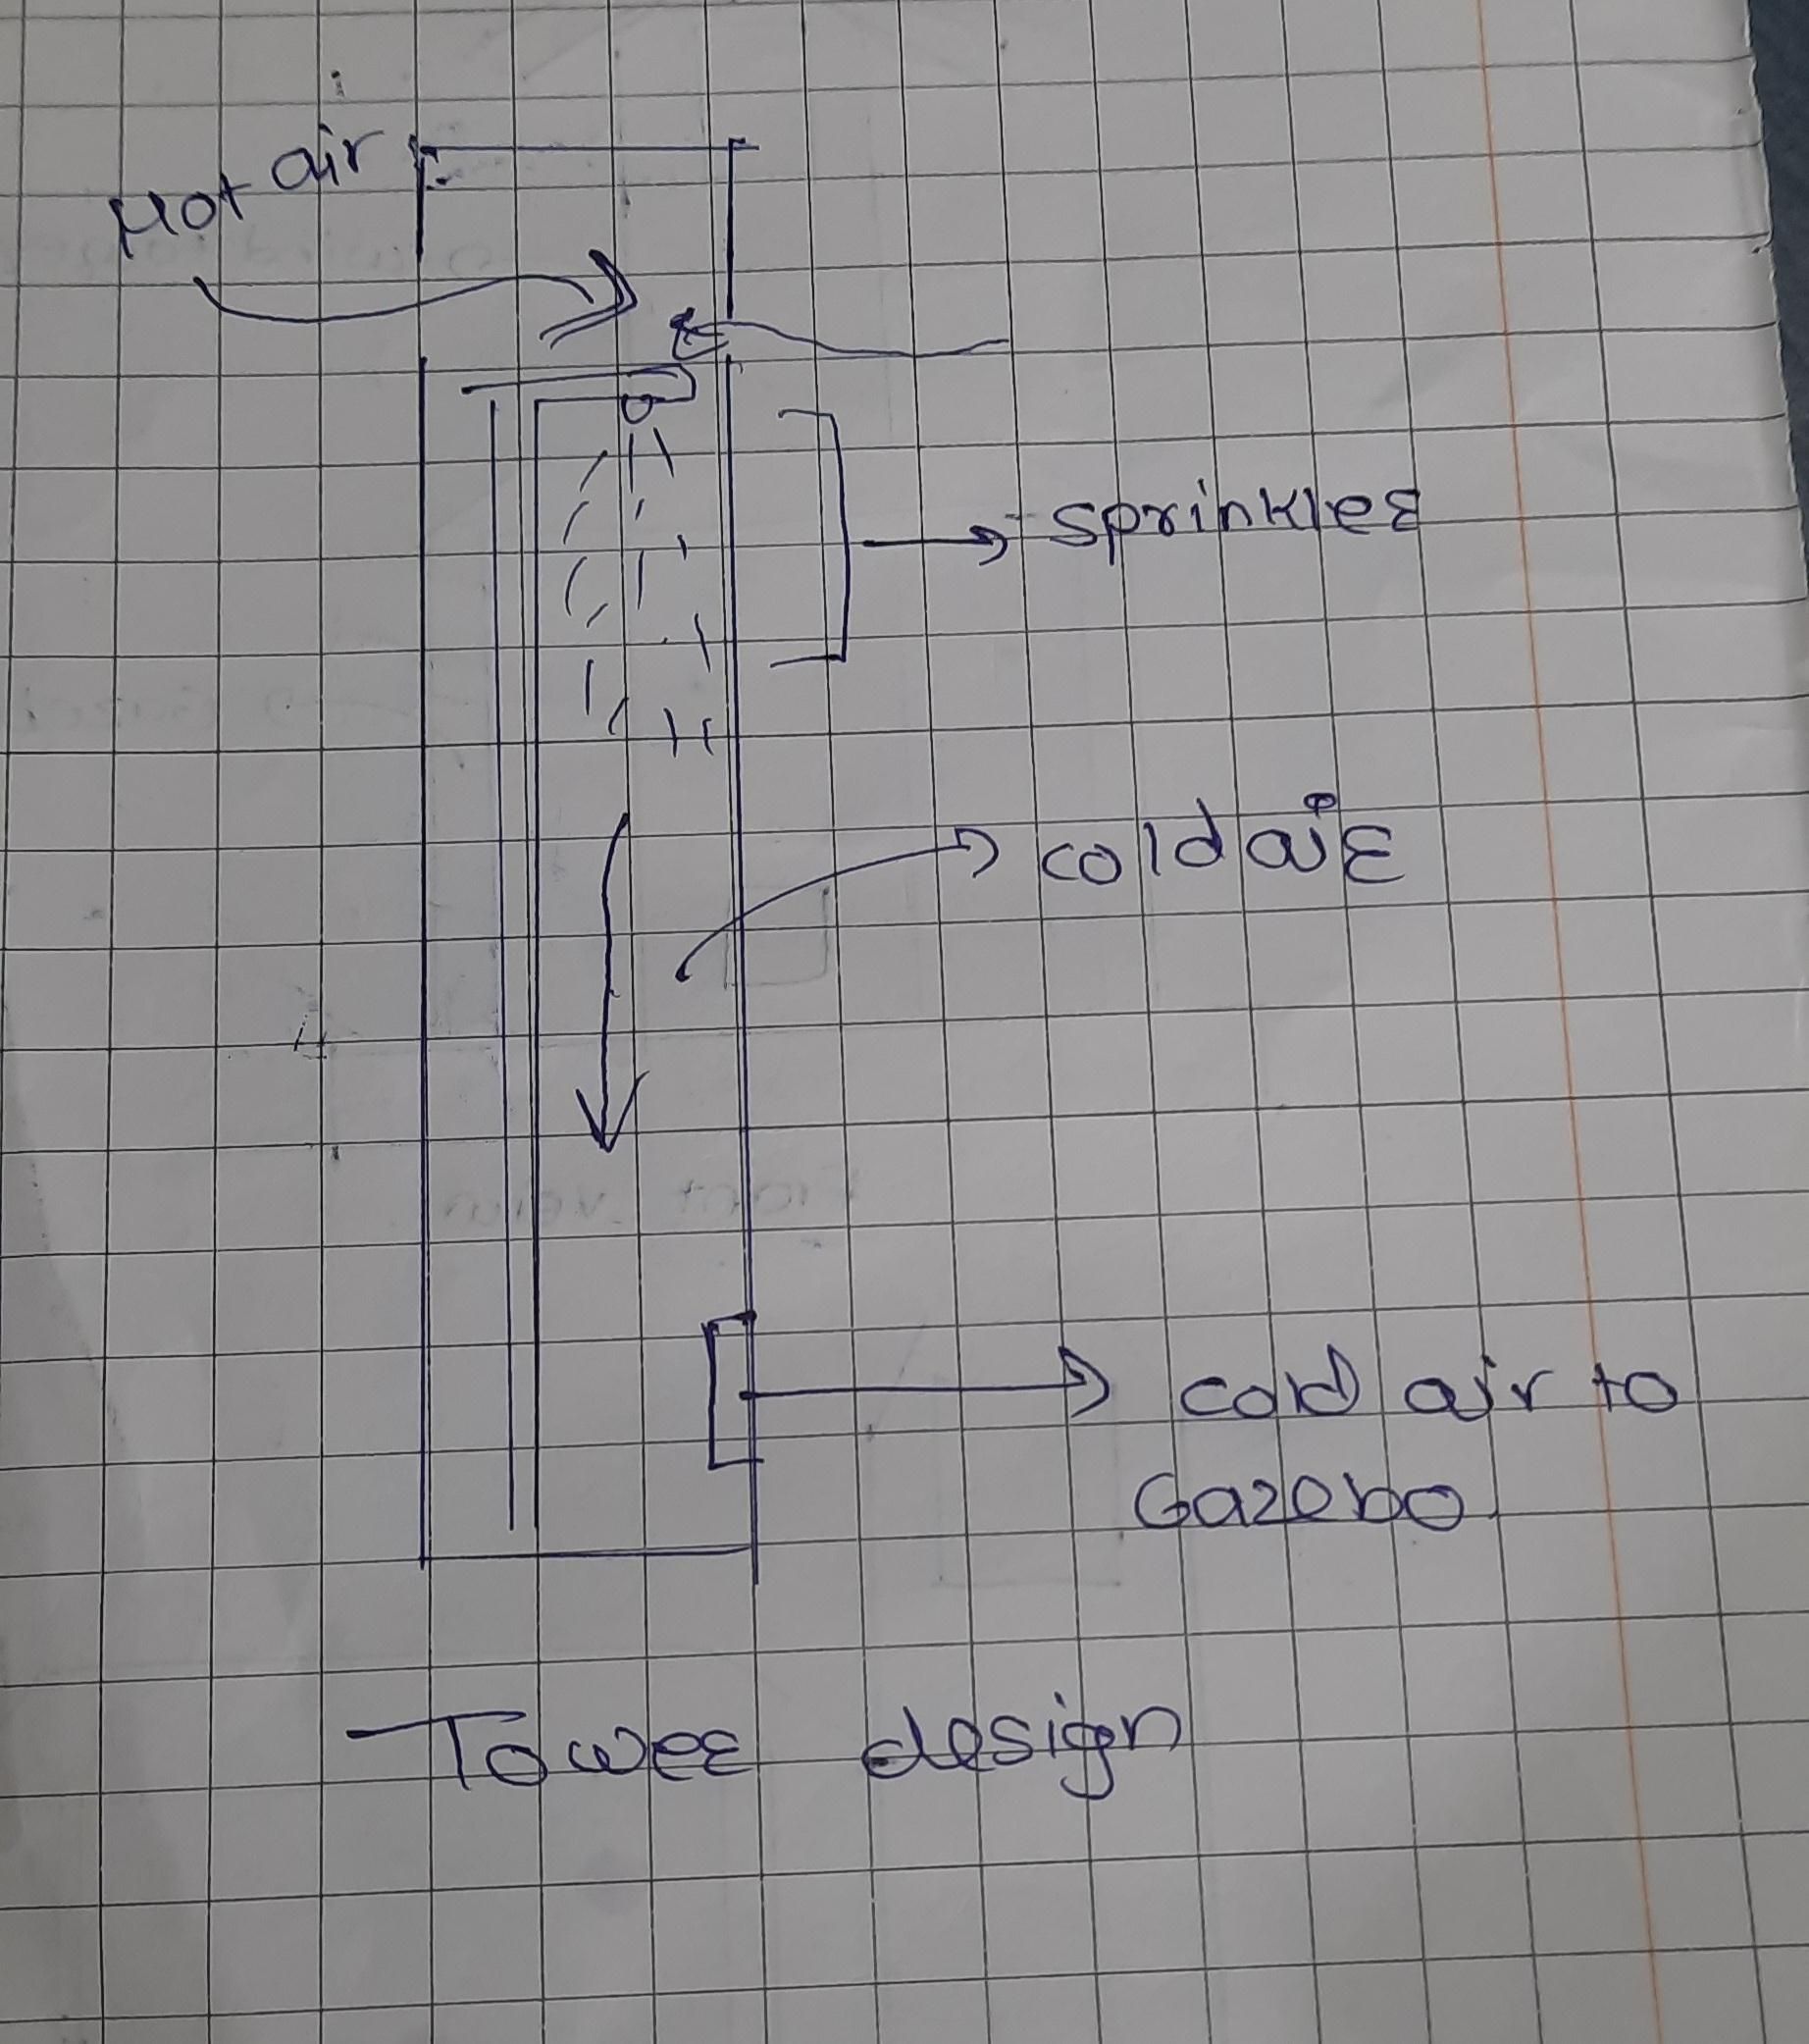 Hot air
sprinkler
cold air
cold air to
Gazebo
Tower design